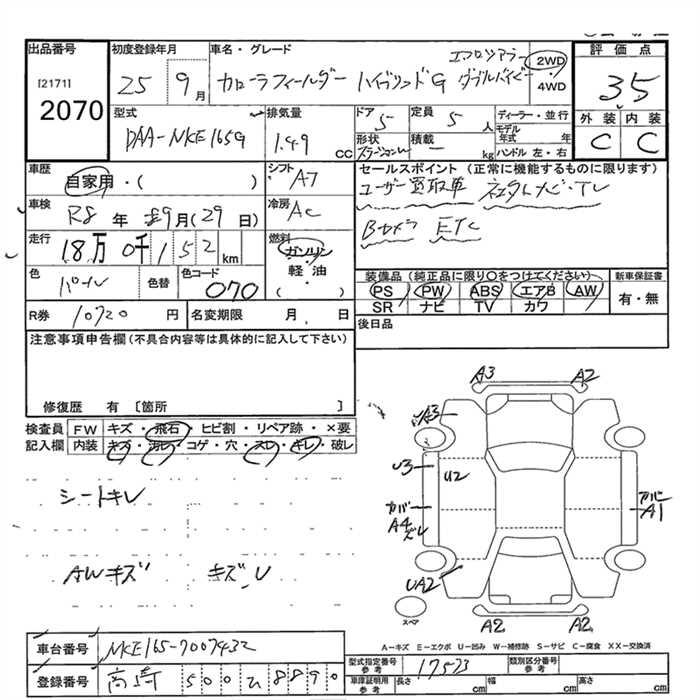 出品番号
[2171]
2070
初度登録年月
25 9月
車名・グレード
カローラフィールダー ハイブリッドG エアロツアラー ダブルバイビー
2WD
4WD
評価点
3.5
外装 内装
C C
型式
DAA-NKE165G
排気量
1.49 CC
ドア
5
定員
5 人
形状
ステーションW
積載
ー kg
ディーラー・並行
モデル年式 年
ハンドル 左・右
車歴
自家用・( )
シフト
A7
車検
R8年 9月(29日)
冷房
AC
走行
18万0千152km
燃料
ガソリン
軽・油
・
( )
色
パール
色替
色コード
070
R券 10720円
名変期限 月 日
セールスポイント(正常に機能するものに限ります)
ユーザー買取車 社外ナビ・TV
Bカメラ ETC
装備品(純正品に限り○をつけてください)
PS PW ABS エアB AW
SR ナビ TV カワ
新車保証書
有・無
後日品
注意事項申告欄(不具合内容等は具体的に記入して下さい)
修復歴 有 [箇所 ]
検査員記入欄
FW キズ・飛石・ヒビ割・リペア跡・×要
内装 キズ・汚レ・コゲ・穴・スレ・キレ・破レ
シートキレ
AWキズ キズ、U
A3 A2
A3
U3 U2
カバー
A4
ズレ
カバー
A1
UA2
A2 A2
スペア
A-キズ E-エクボ U-凹み W-補修跡 S-サビ C-腐食 XX-交換済
車台番号 NKE165-7007432
登録番号 高崎 500 ひ 8890
型式指定番号参考 17573
類別区分番号参考
車庫証明用参考 長さ cm 幅 cm 高さ cm